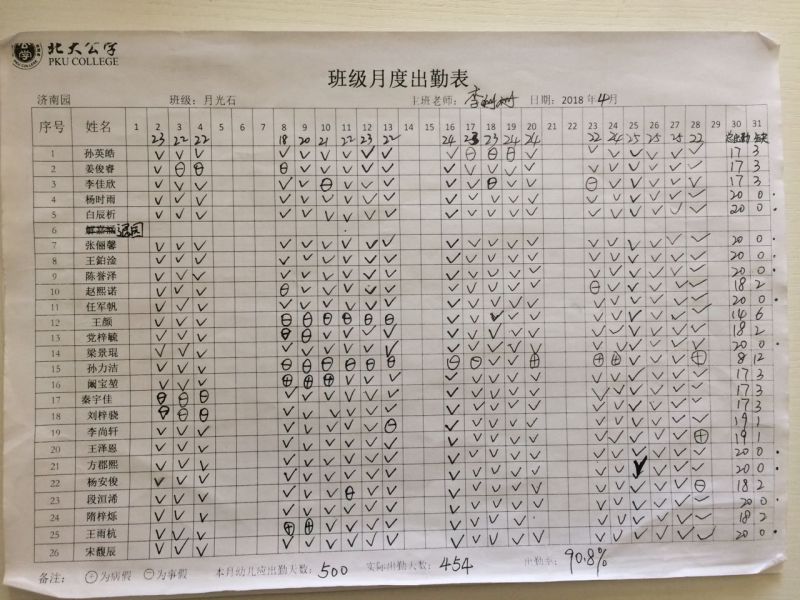 北大公学
PKU COLLEGE
班级月度出勤表
济南园 班级：月光石 主班老师： 日期：2018年4月
序号 姓名 1 2 3 4 5 6 7 8 9 10 11 12 13 14 15 16 17 18 19 20 21 22 23 24 25 26 27 28 29 30 31
23 22 22 18 20 21 22 23 22 24 23 23 24 24 22 24 25 25 25
1 孙英皓 17 3
2 姜俊睿 17 3
3 李佳欣 17 3
4 杨时雨 20 0
5 白辰析 20 0
6 退园
7 张俪馨 20 0
8 王铂淦 20 0
9 陈誉泽 20 0
10 赵熙诺 18 2
11 任军帆 20 0
12 王颜 14 6
13 党梓毓 18 2
14 梁景琨 20 0
15 孙力洁 8 12
16 阚宝堃 17 3
17 秦宇佳 17 3
18 刘梓骁 17 3
19 李尚轩 19 1
20 王泽恩 19 1
21 方郡熙 20 0
22 杨安俊 20 0
23 段洹浠 18 2
24 隋梓烁 20 0
25 王雨杭 18 2
26 宋馥辰 20 0
备注： ⊕为病假 ⊖为事假 本月幼儿应出勤天数：500 实际出勤天数：454 出勤率：90.8%